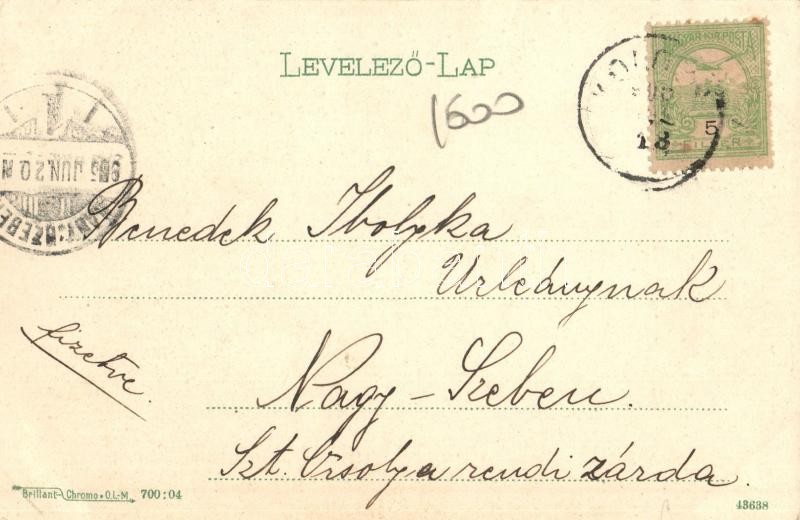 LEVELEZŐ-LAP
1600
MAGYAR KIR. POSTA
5
FILLÉR
905 JUN. 20. N
NAGYSZEBEN
18
Benedek Ibolyka
Urleánynak
fizetve.
Nagy-Szeben.
Szt. Orsolya rendi zárda.
Brillant-Chromo • O.L.-M. 700:04
43638